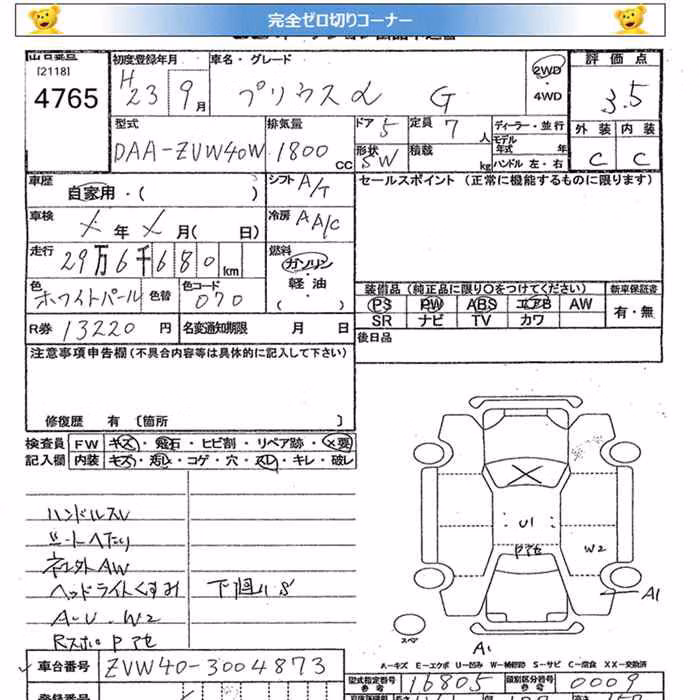 完全ゼロ切りコーナー
[2118]
4765
初度登録年月
H23 9月
車名・グレード
プリウスα G
2WD
4WD
評価点
3.5
型式
DAA-ZVW40W
排気量
1800 CC
ドア 5
定員 7 人
形状 SW
積載 kg
ディーラー・並行
モデル年式 年
ハンドル 左・右
外装 内装
C C
車歴
自家用・( )
シフト A/T
セールスポイント (正常に機能するものに限ります)
車検
メ年 メ月( 日)
冷房 AA/C
走行
29万6千680km
燃料
ガソリン
軽・油
( ・ )
色
ホワイトパール
色替
色コード
070
装備品 (純正品に限り○をつけてください)
新車保証書
PS PW ABS エアB AW
有・無
SR ナビ TV カワ
R券 13220 円
名変通知期限 月 日
後日品
注意事項申告欄(不具合内容等は具体的に記入して下さい)
修復歴 有 〔箇所 〕
検査員 FW キズ・飛石・ヒビ割・リペア跡・×要
記入欄 内装 キズ・汚レ・コゲ・穴・スレ・キレ・破レ
ハンドルスレ
シートへたり
ネジ外AW
ヘッドライトくすみ
下回りS
A-U.W2
U1
W2
A1
A1
スペ
A-キズ E-エクボ U-凹み W-補修跡 S-サビ C-腐食 XX-交換済
車台番号
ZVW40-3004873
型式指定番号
参考
16805
類別区分番号
参考
0009
登録番号